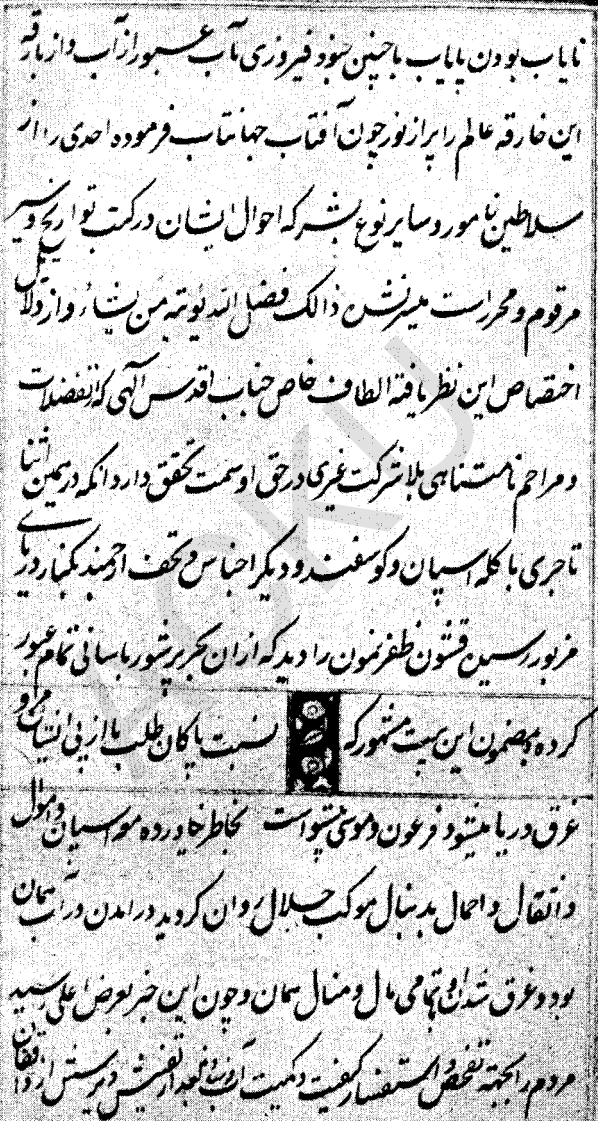 نایاب بودن پایاب با چنین جنود فیروزی مآب عبور از آب و از بارقه
این خارقه عالم را پر از نور چون آفتاب جهانتاب فرموده احدی را از
سلاطین نامور و سایر نوع بشر که احوال ایشان در کتب تواریخ و سیر
مرقوم و محرر است میسر نشده ذالک فضل الله یؤتیه من یشاء و از دلایل
اختصاص این نظر یافته الطاف خاص جناب اقدس الهی که تفضلات
و مراحم نامتناهی بلا شرکت غیری در حق او سمت تحقق دارد آنکه در همین اثنا
تاجری با گله اسپان و گوسفند و دیگر اجناس و تحف ارجمند بکنار دریای
مزبور رسید قشون ظفرنمون را دید که از آن بحر پر شور بآسانی تمام عبور
کرده بمضمون این بیت مشهور که نسبت پاکان طلب با از پی ایشان مرو
غرق دریا میشود فرعون و موسی پیشواست بخاطر نیاورده مع اسپان و اموال
و اثقال و احمال بدنبال موکب جلال روان گردید در آمدن در آب همان
بود و غرق شدن او و تمامی مال و منال همان و چون این خبر بعرض اعلی رسید
مردم را بجهة تفحص و استفسار کیفیت و کمیت آب فرستاده بعد از تفتیش و پرسش از واقفان
AOKU